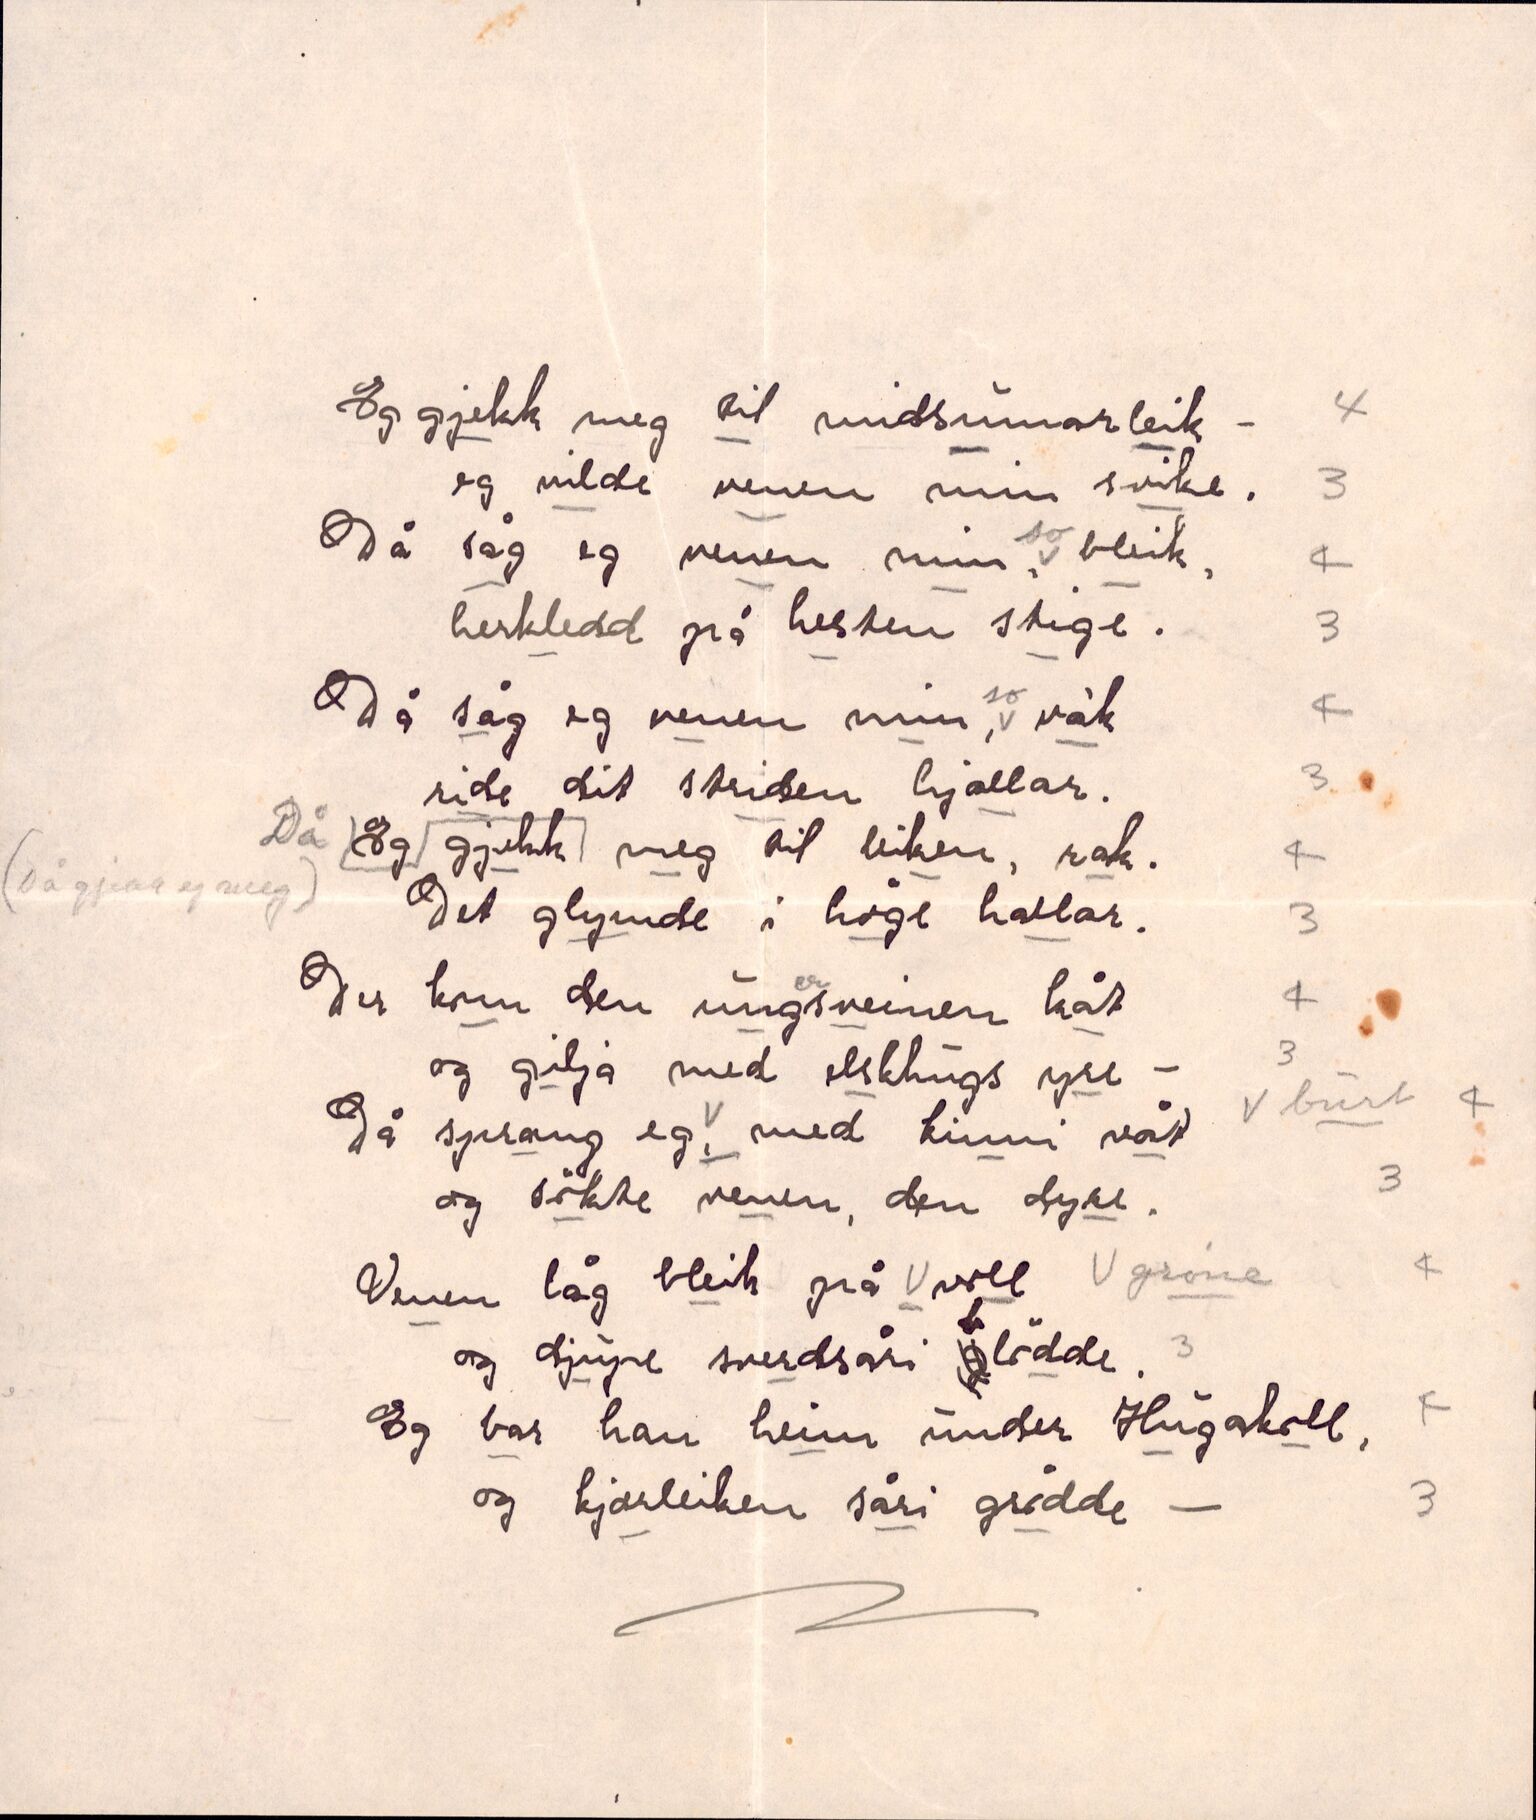 Eg gjekk meg til midsumarleik - 4
eg vilde venen min svike. 3
Då såg eg venen min, so bleik, 4
herkledd på hesten stige. 3
Då såg eg venen min, so våk 4
ride dit striden hjallar. 3
Då Eg gjekk meg til leiken, rak. 4
(Då gjekk eg meg)
Det glymde i høge hallar. 3
Der kom den ungersveinen kåt 4
og gilja med elskhugs yre - 3
V burt 4
Då sprang eg, V med kinni våt
og sökte venen, den dyre. 3
Venen låg bleik på V voll V gröne 4
og djupe sverdsåri blödde. 3
Eg bar han heim under Hugakoll, 4
og kjærleiken såri grødde — 3